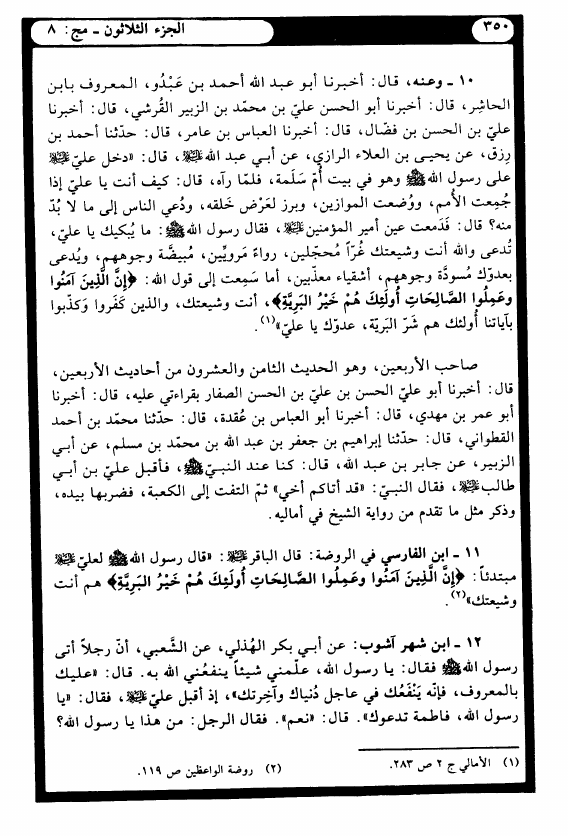 ٣٥٠
الجزء الثلاثون ـ مج: ٨
١٠ ـ وعنه، قال: أخبرنا أبو عبد الله أحمد بن عَبْدُو، المعروف بابن
الحاشِر، قال: أخبرنا أبو الحسن عليّ بن محمّد بن الزبير القُرشي، قال: أخبرنا
عليّ بن الحسن بن فضّال، قال: أخبرنا العباس بن عامر، قال: حدّثنا أحمد بن
رِزق، عن يحيى بن العلاء الرازي، عن أبي عبد الله، قال: «دخل عليّ
على رسول الله ﷺ وهو في بيت أمّ سَلَمة، فلمّا رآه، قال: كيف أنت يا عليّ إذا
جُمِعت الأُمم، ووُضعت الموازين، وبرز لعَرْض خلقه، ودُعي الناس إلى ما لا بُدّ
منه؟ قال: فَدَمعت عين أمير المؤمنين، فقال رسول الله ﷺ: ما يُبكيك يا عليّ،
تُدعى والله أنت وشيعتك غُرّاً مُحجّلين، رواءً مَرويّين، مُبيضّة وجوههم، ويُدعى
بعدوّك مُسودَّة وجوههم، أشقياء معذّبين، أما سَمِعت إلى قول الله: ﴿إِنَّ الَّذِينَ آمَنُوا
وعَمِلُوا الصَّالِحَاتِ أُولَئِكَ هُمْ خَيْرُ البَرِيَّةِ﴾، أنت وشيعتك، والذين كَفَروا وكَذّبوا
بآياتنا أُولئك هم شَرّ البَريّة، عدوّك يا عليّ»(١).
صاحب الأربعين، وهو الحديث الثامن والعشرون من أحاديث الأربعين،
قال: أخبرنا أبو عليّ الحسن بن عليّ بن الحسن الصفار بقراءتي عليه، قال: أخبرنا
أبو عمر بن مهدي، قال: أخبرنا أبو العباس بن عُقدة، قال: حدّثنا محمّد بن أحمد
القطواني، قال: حدّثنا إبراهيم بن جعفر بن عبد الله بن محمّد بن مسلم، عن أبي
الزبير، عن جابر بن عبد الله، قال: كنا عند النبيّ ﷺ، فأقبل عليّ بن أبي
طالب، فقال النبيّ: «قد أتاكم أخي» ثمّ التفت إلى الكعبة، فضربها بيده،
وذكر مثل ما تقدم من رواية الشيخ في أماليه.
١١ ـ ابن الفارسي في الروضة: قال الباقر: «قال رسول الله ﷺ لعليّ
مبتدئاً: ﴿إِنَّ الَّذِينَ آمَنُوا وعَمِلُوا الصَّالِحَاتِ أُولَئِكَ هُمْ خَيْرُ البَرِيَّةِ﴾ هم أنت
وشيعتك»(٢).
١٢ ـ ابن شهر آشوب: عن أبي بكر الهُذلي، عن الشَّعبي، أنّ رجلاً أتى
رسول الله ﷺ فقال: يا رسول الله، علّمني شيئاً ينفعُني الله به. قال: «عليك
بالمعروف، فإنّه يَنْفَعُك في عاجل دُنياك وآخِرتك»، إذ أقبل عليّ، فقال: «يا
رسول الله، فاطمة تدعوك». قال: «نعم». فقال الرجل: من هذا يا رسول الله؟
(١) الأمالي ج ٢ ص ٢٨٣.
(٢) روضة الواعظين ص ١١٩.